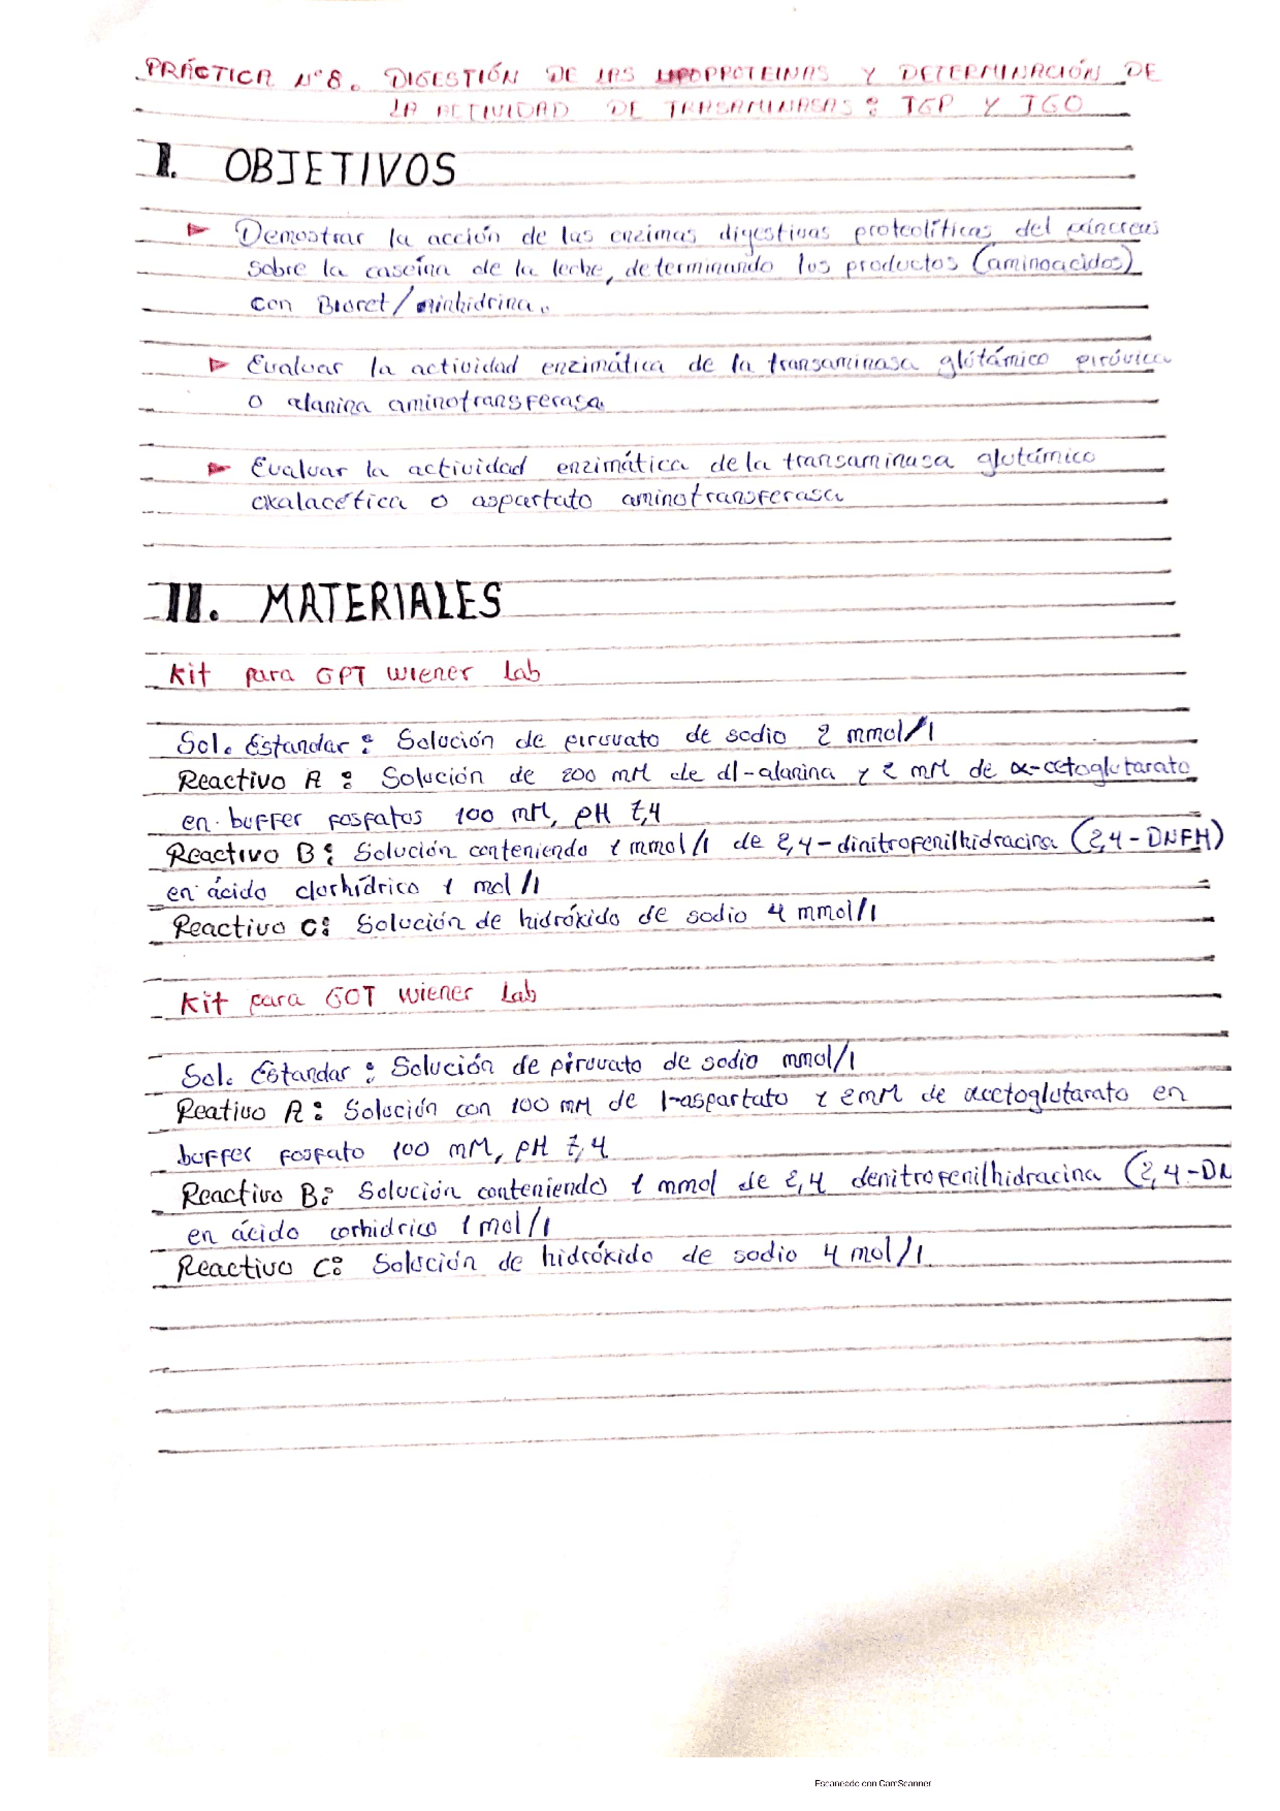 PRÁCTICA N°8. DIGESTIÓN DE LAS LIPOPROTEINAS Y DETERMINACIÓN DE
LA ACTIVIDAD DE TRASAMINASAS: TGP Y TGO
I. OBJETIVOS
Demostrar la acción de las enzimas digestivas proteolíticas del páncreas
sobre la caseína de la leche, determinando los productos (aminoacidos)
con Biuret/ninhidrina.
Evaluar la actividad enzimática de la transaminasa glutámico pirúvica
o alanina aminotransferasa
Evaluar la actividad enzimática de la transaminasa glutámico
oxalacética o aspartato aminotransferasa
II. MATERIALES
Kit para GPT wiener Lab
Sol. Estandar: Solución de piruvato de sodio 2 mmol/l
Reactivo A: Solución de 200 mM de dl-alanina y 2 mM de α-cetoglutarato
en buffer fosfatos 100 mM, pH 7,4
Reactivo B: Solución conteniendo 1 mmol/l de 2,4-dinitrofenilhidracina (2,4-DNFH)
en ácido clorhídrico 1 mol/l
Reactivo C: Solución de hidróxido de sodio 4 mmol/l
Kit para GOT wiener Lab
Sol. Estandar: Solución de piruvato de sodio mmol/l
Reativo A: Solución con 100 mM de l-aspartato y 2mM de acetoglutarato en
buffer fosfato 100 mM, pH 7,4
Reactivo B: Solución conteniendo 1 mmol de 2,4 denitrofenilhidracina (2,4-DN
en ácido corhidrico 1 mol/l
Reactivo C: Solución de hidróxido de sodio 4 mol/l
Escaneado con CamScanner